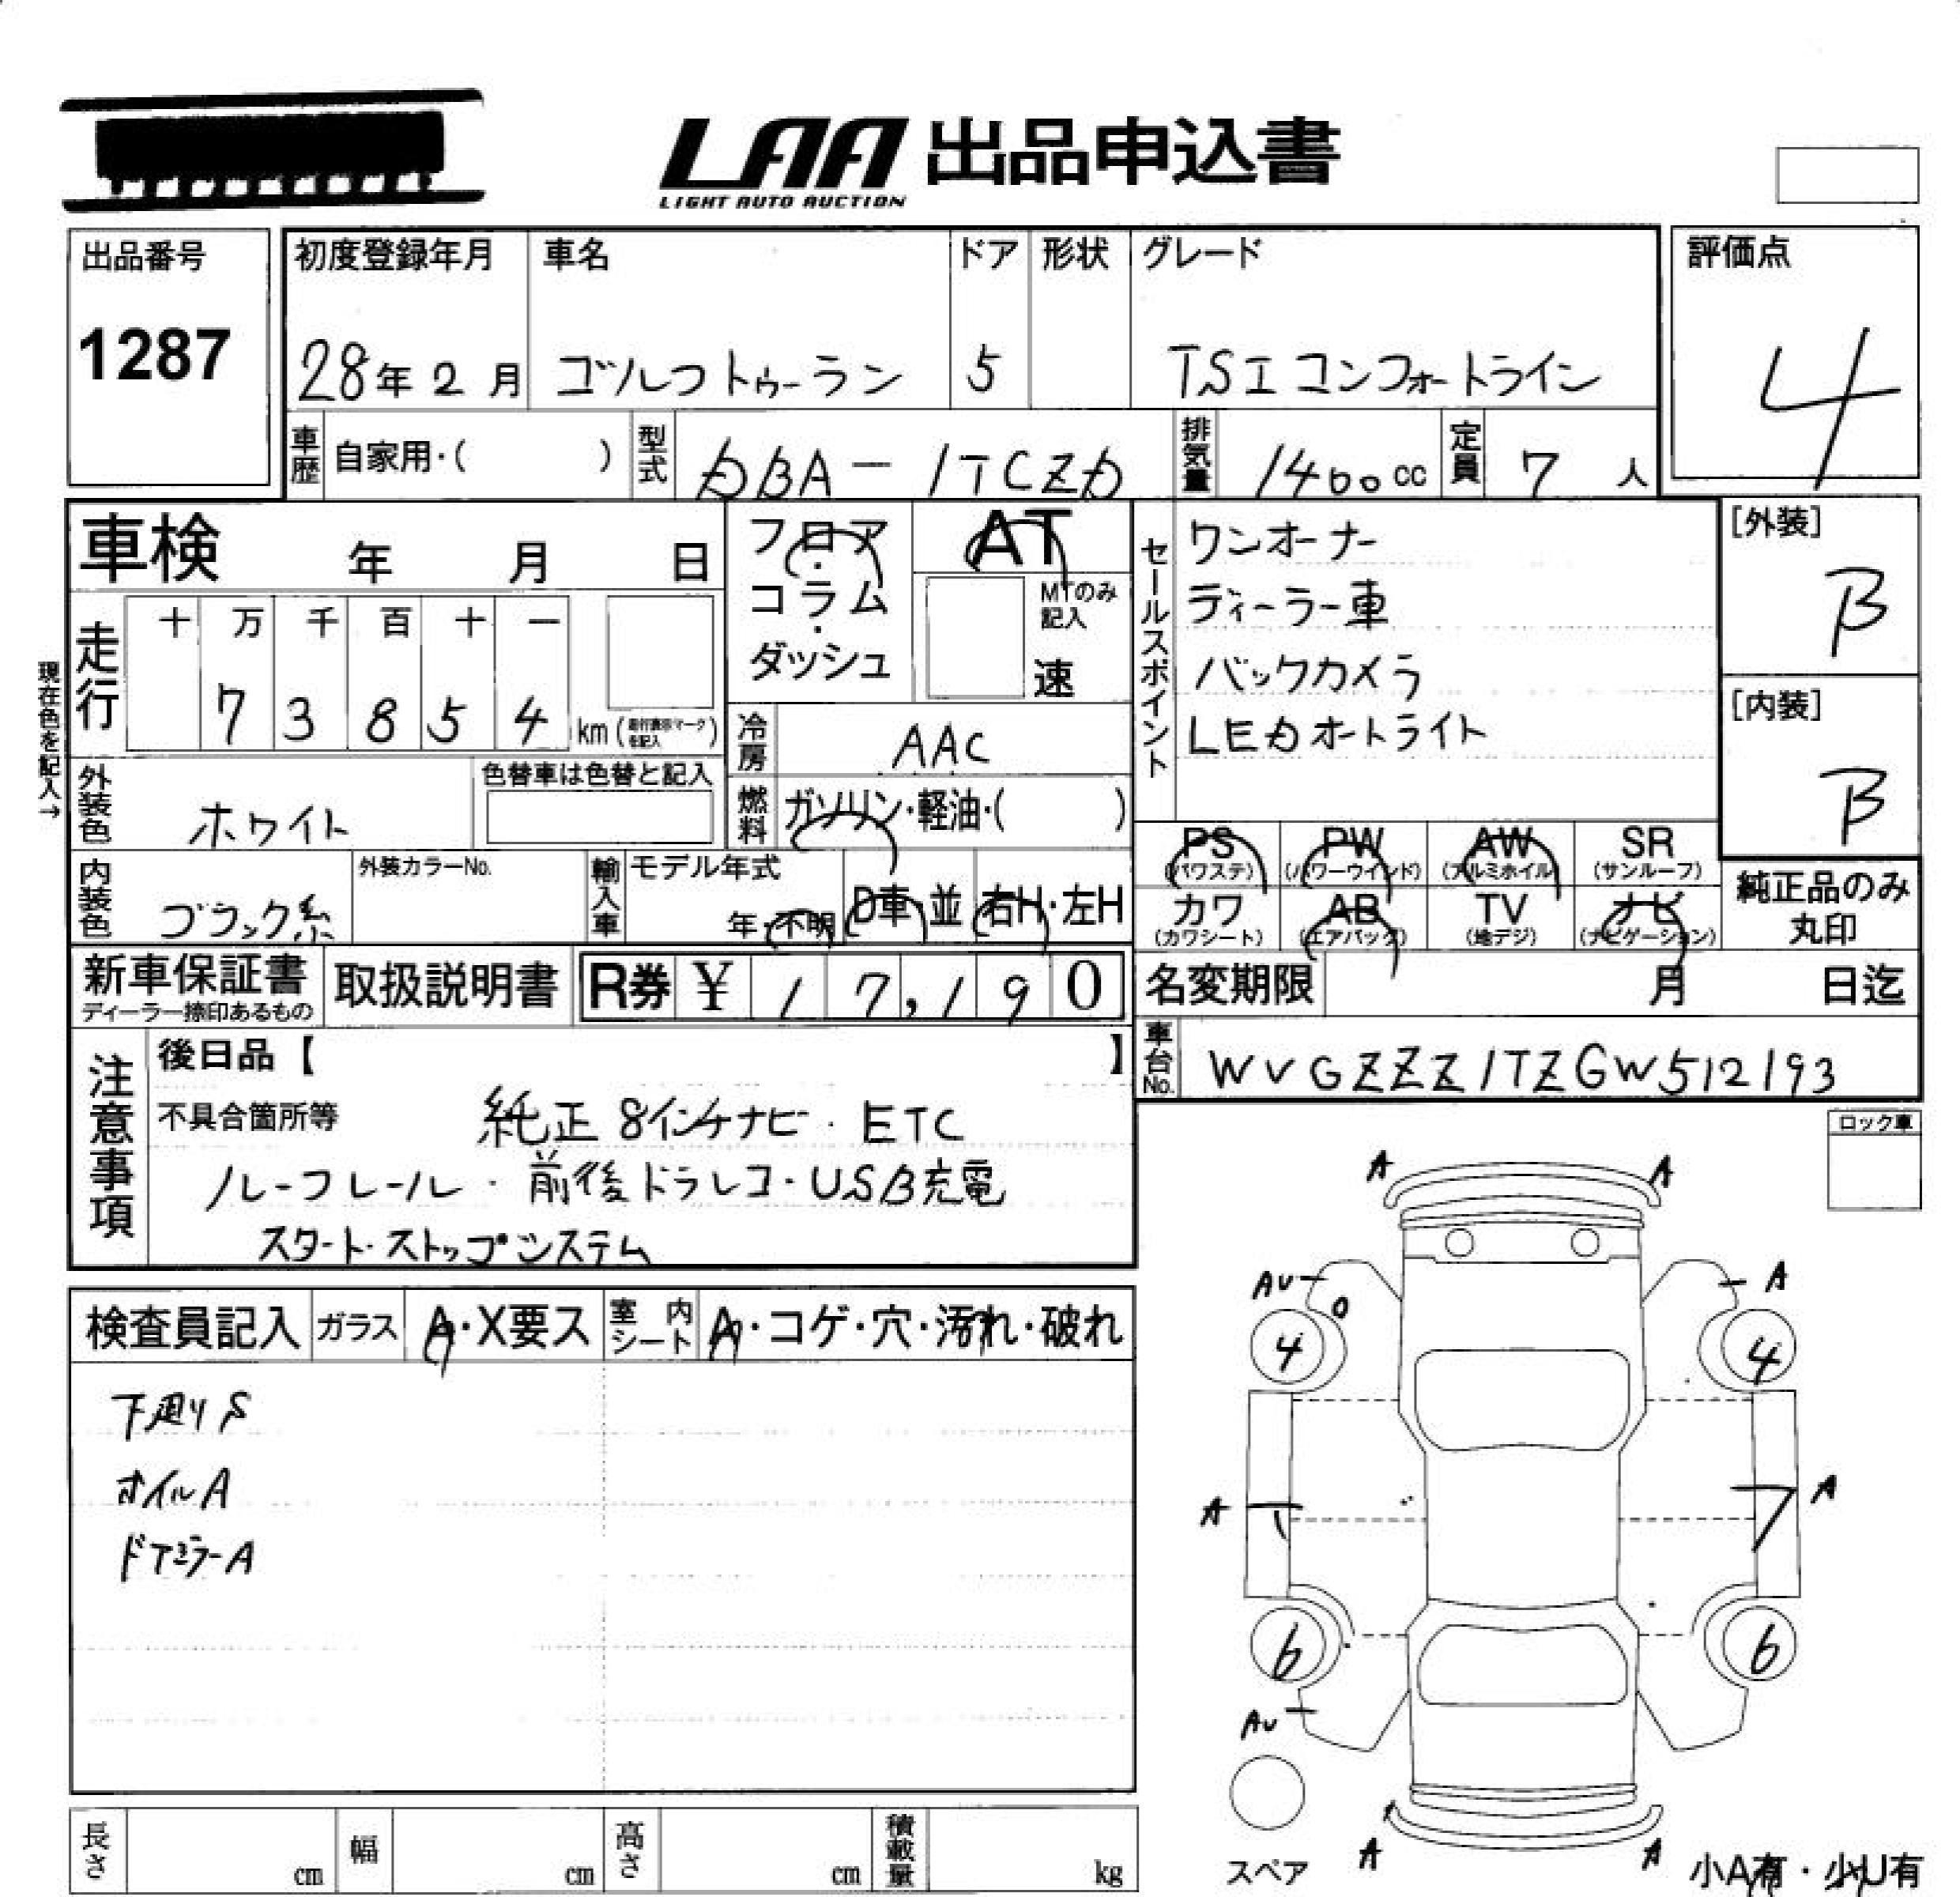 LAA 出品申込書
LIGHT AUTO AUCTION
出品番号
1287
初度登録年月 車名 ドア 形状 グレード
28年2月 ゴルフトゥーラン 5 TSI コンフォートライン
評価点
4
車歴 自家用・( ) 型式 DBA-1TCZD 排気量 1400cc 定員 7人
車検 年 月 日
フロア・コラム・ダッシュ
AT
MTのみ記入
速
セールスポイント
ワンオーナー
ディーラー車
バックカメラ
LEDオートライト
[外装]
B
[内装]
B
現在色を記入→
走行
十 万 千 百 十 一
7 3 8 5 4 km (走行表示マークを記入)
冷房 AAC
外装色 ホワイト
色替車は色替と記入
燃料 ガソリン・軽油・( )
PS (パワステ) PW (パワーウインド) AW (アルミホイル) SR (サンルーフ)
カワ (カワシート) AB (エアバッグ) TV (地デジ) ナビ (ナビゲーション)
純正品のみ
丸印
内装色 ブラック系
外装カラーNo.
輸入車 モデル年式
年・不明 D車・並 右H・左H
新車保証書
ディーラー捺印あるもの
取扱説明書
R券 ¥ 17,190
名変期限 月 日迄
車台No. WVGZZZ1TZGW512193
注意事項
後日品【 】
不具合箇所等 純正8インチナビ・ETC
ルーフレール・前後ドラレコ・USB充電
スタート・ストップシステム
ロック車
検査員記入 ガラス A・X要ス 室内シート A・コゲ・穴・汚れ・破れ
下廻りS
ホイルA
ドアミラーA
A A
AU A
4 4
A A
6 6
AU
A A
スペア
小A有・少U有
長さ cm 幅 cm 高さ cm 積載量 kg